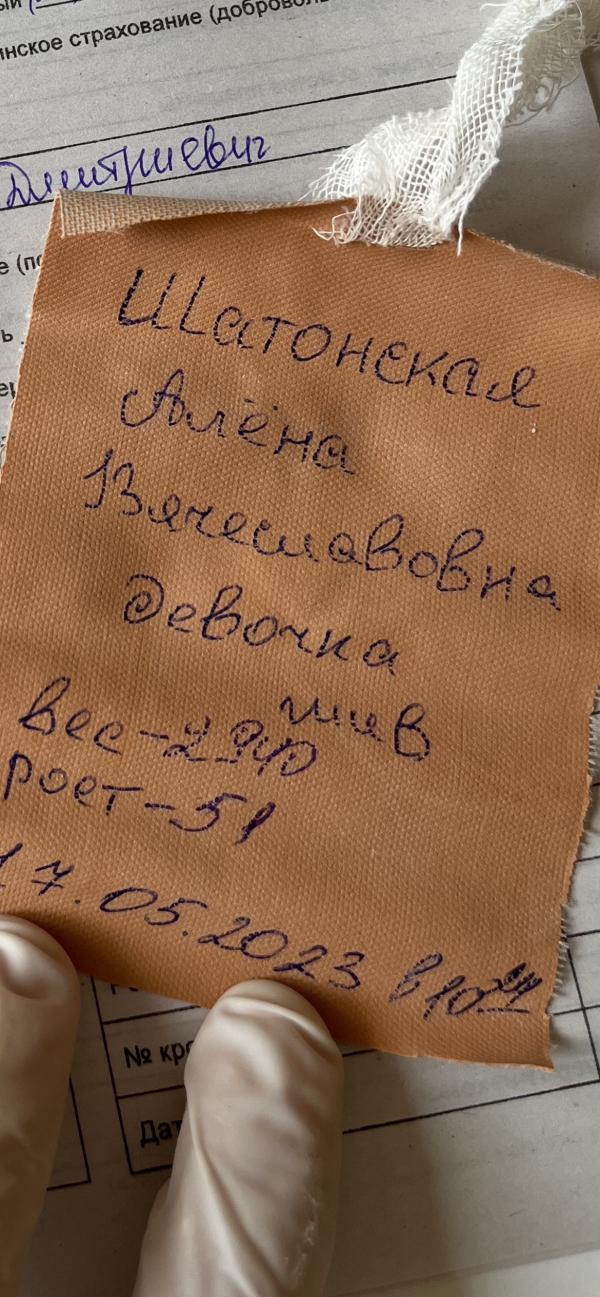 инское страхование (добровол
Дмитриевич
е (по
Шатонская
Алёна
Вячеславовна
девочка
жив
вес-2940
рост-51
17.05.2023 в 10
№ кро
Дат